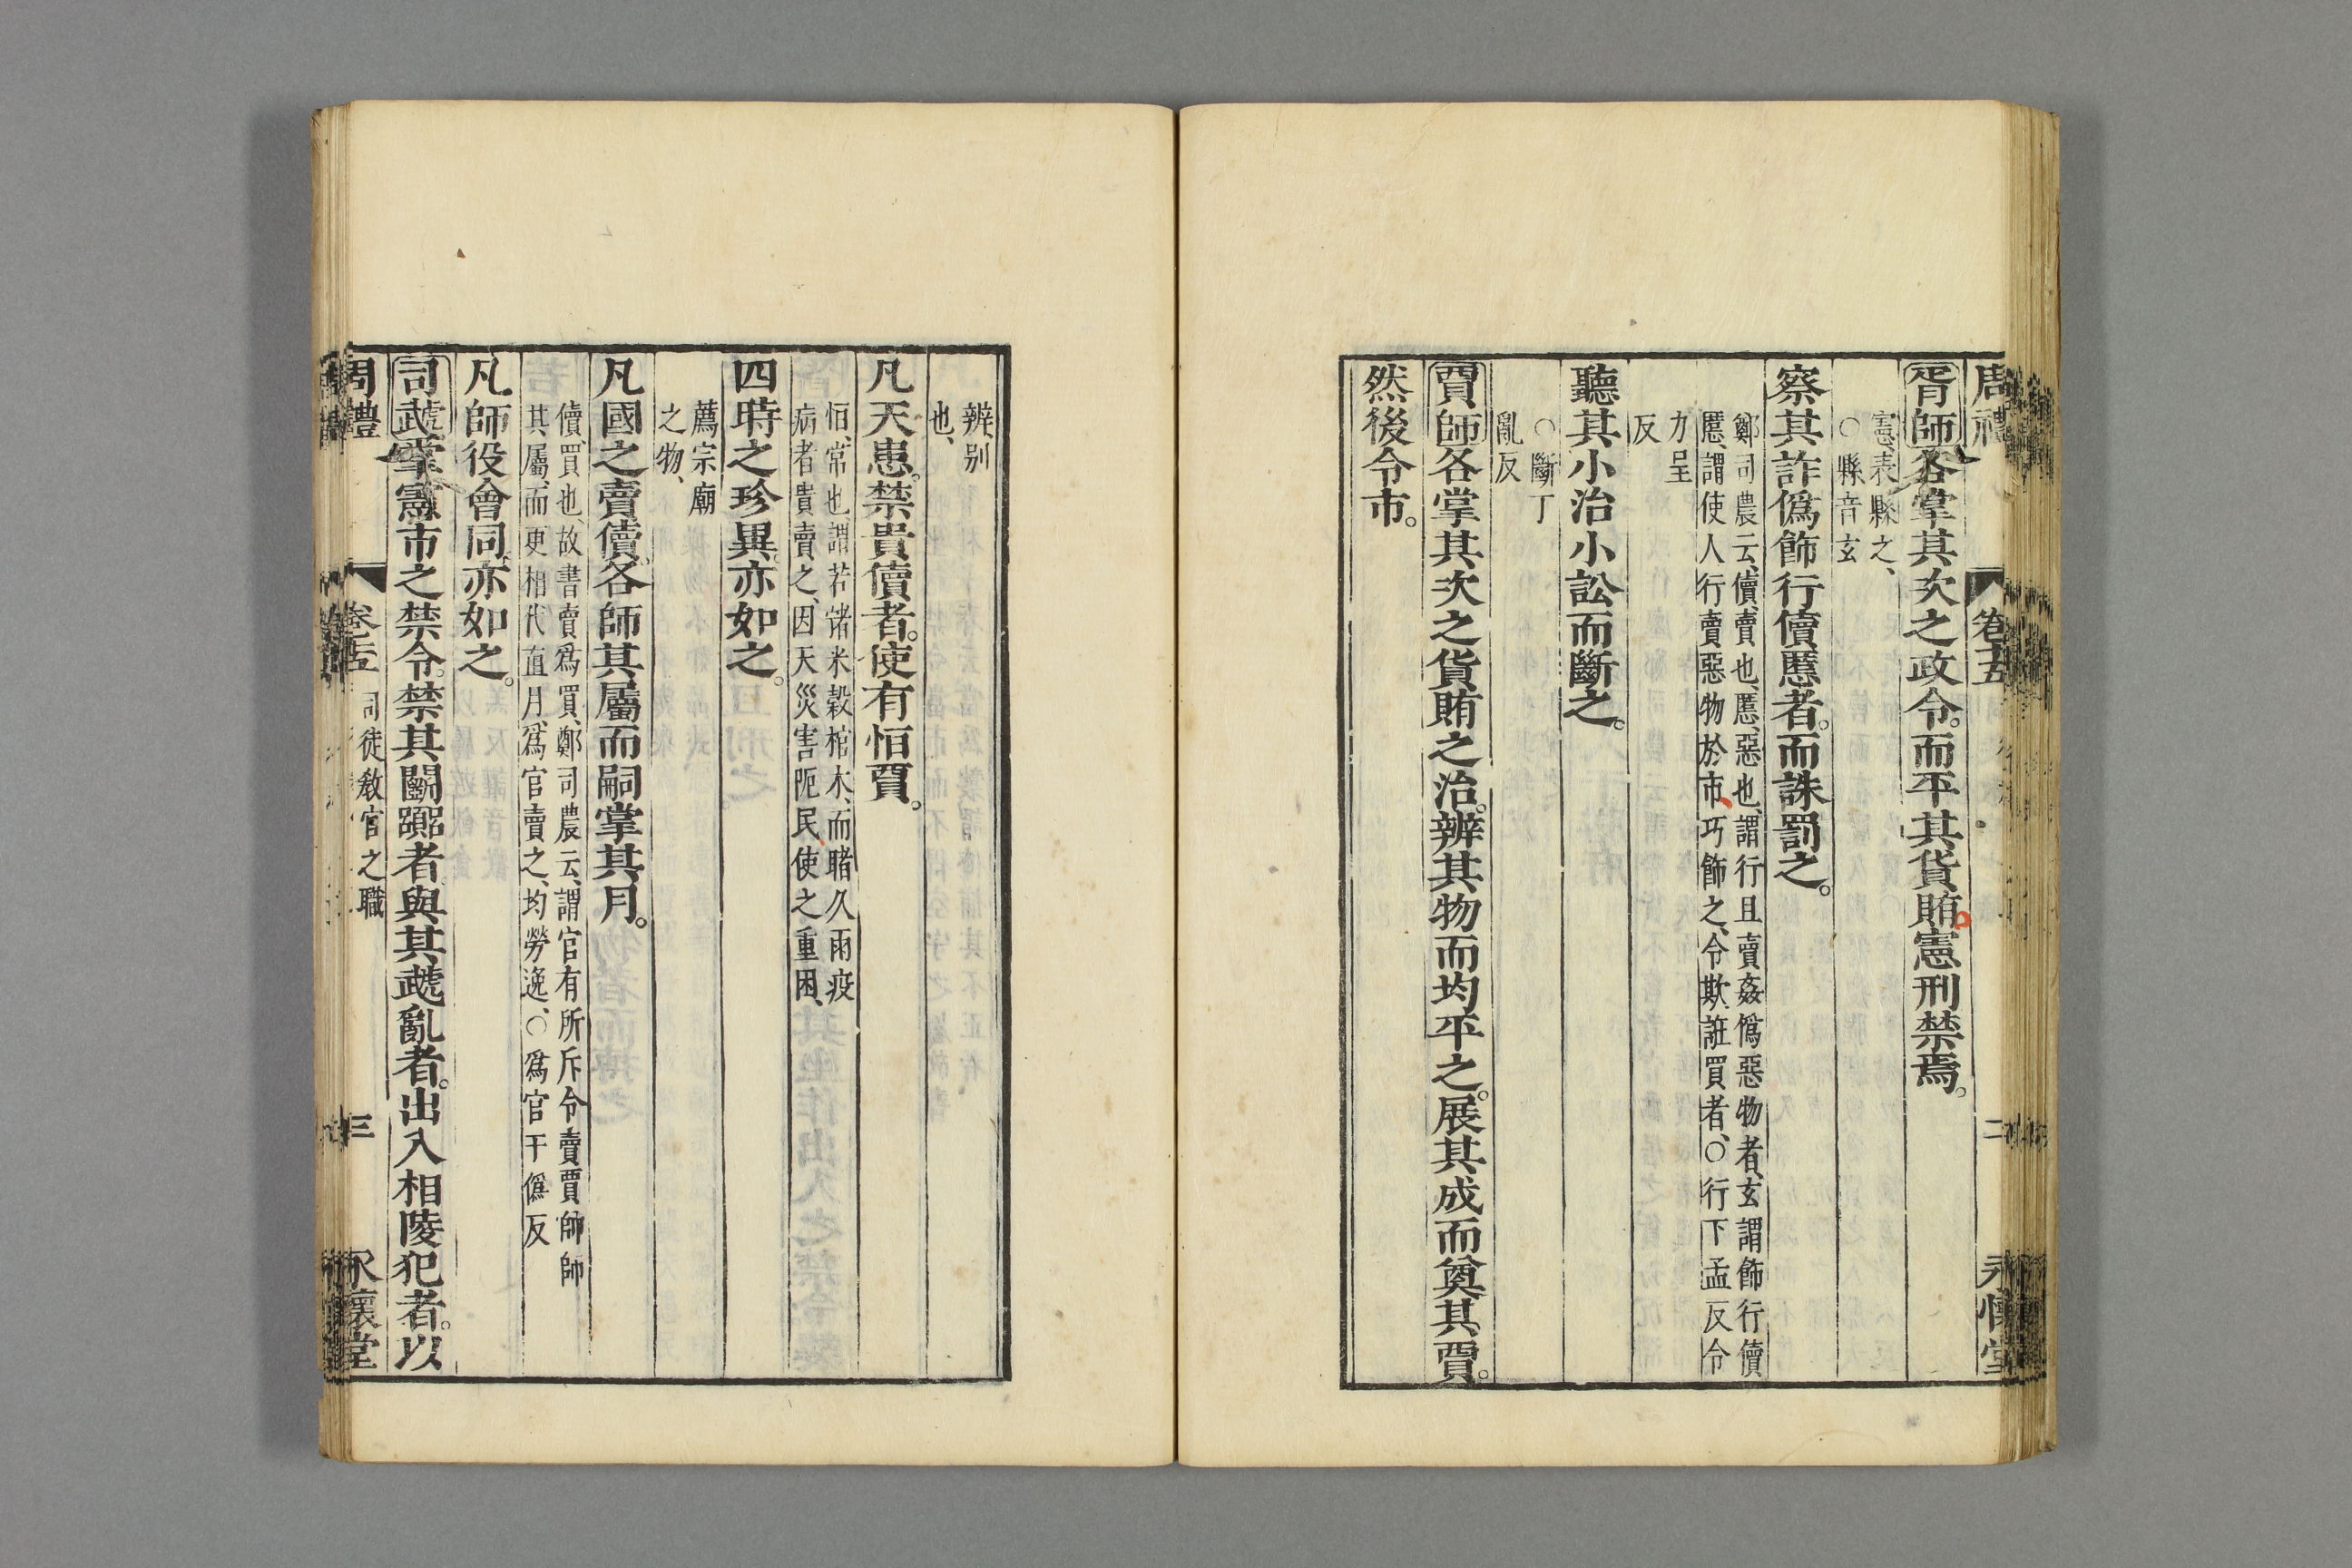 周禮 卷十五 二 永懷堂
胥師各掌其次之政令。而平其貨賄。憲刑禁焉。
憲、表縣之、
○縣音玄
察其詐僞飾行儥慝者。而誅罰之。
鄭司農云、儥、賣也、慝、惡也、謂行且賣姦僞惡物者、玄謂飾行儥
慝、謂使人行賣惡物於市、巧飾之、令欺誑買者、○行下孟反令
力呈
反
聽其小治小訟而斷之。
○斷丁
亂反
賈師各掌其次之貨賄之治。辨其物而均平之。展其成而奠其賈。
然後令市。
辨、別
也、
凡天患。禁貴儥者。使有恒賈。
恒、常也、謂若儲米穀棺木、而睹久雨疫
病者貴賣之、因天災害阨民、使之重困、
四時之珍異。亦如之。
薦宗廟
之物、
凡國之賣儥。各師其屬而嗣掌其月。
儥、買也、故書賣爲買、鄭司農云、謂官有所斥令賣、賈師師
其屬、而更相代直月、爲官賣之、均勞逸、○爲官于僞反
凡師役會同。亦如之。
司虣掌憲市之禁令。禁其鬭囂者。與其虣亂者。出入相陵犯者。以
周禮 卷十五 司徒教官之職 三 永懷堂